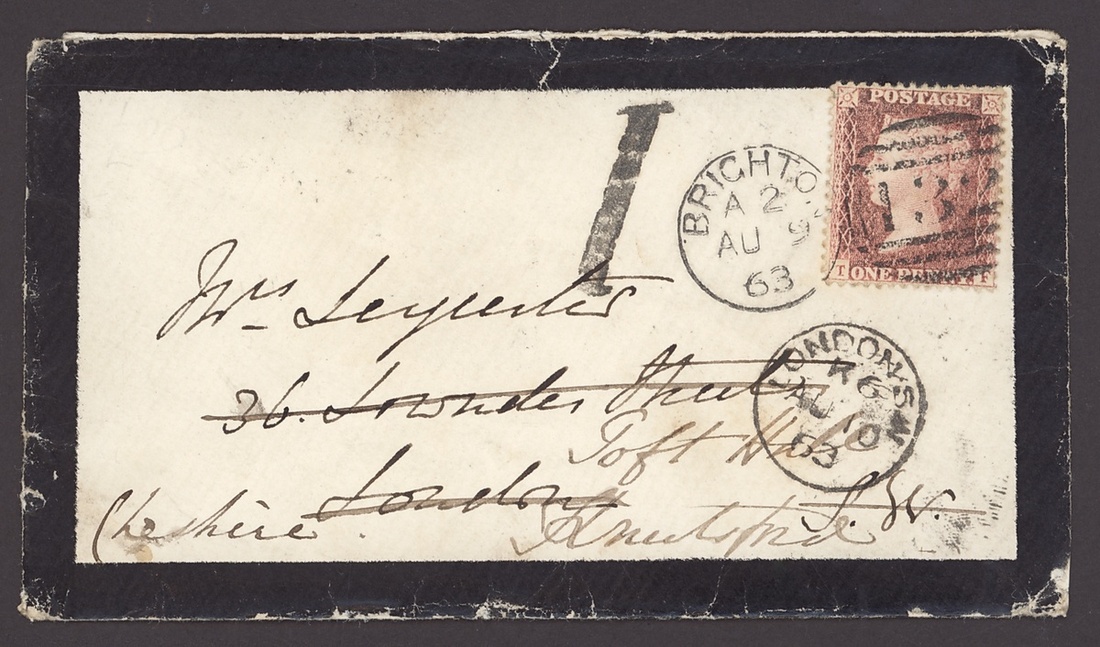 1
BRIGHTON
A 2
AU 9
63
POSTAGE
132
T ONE PENNY F
Mrs Leycester
36. Lowndes Street
London
S. W.
LONDON·S.W
K6
AU 10
63
Toft Hall
Knutsford
Cheshire.